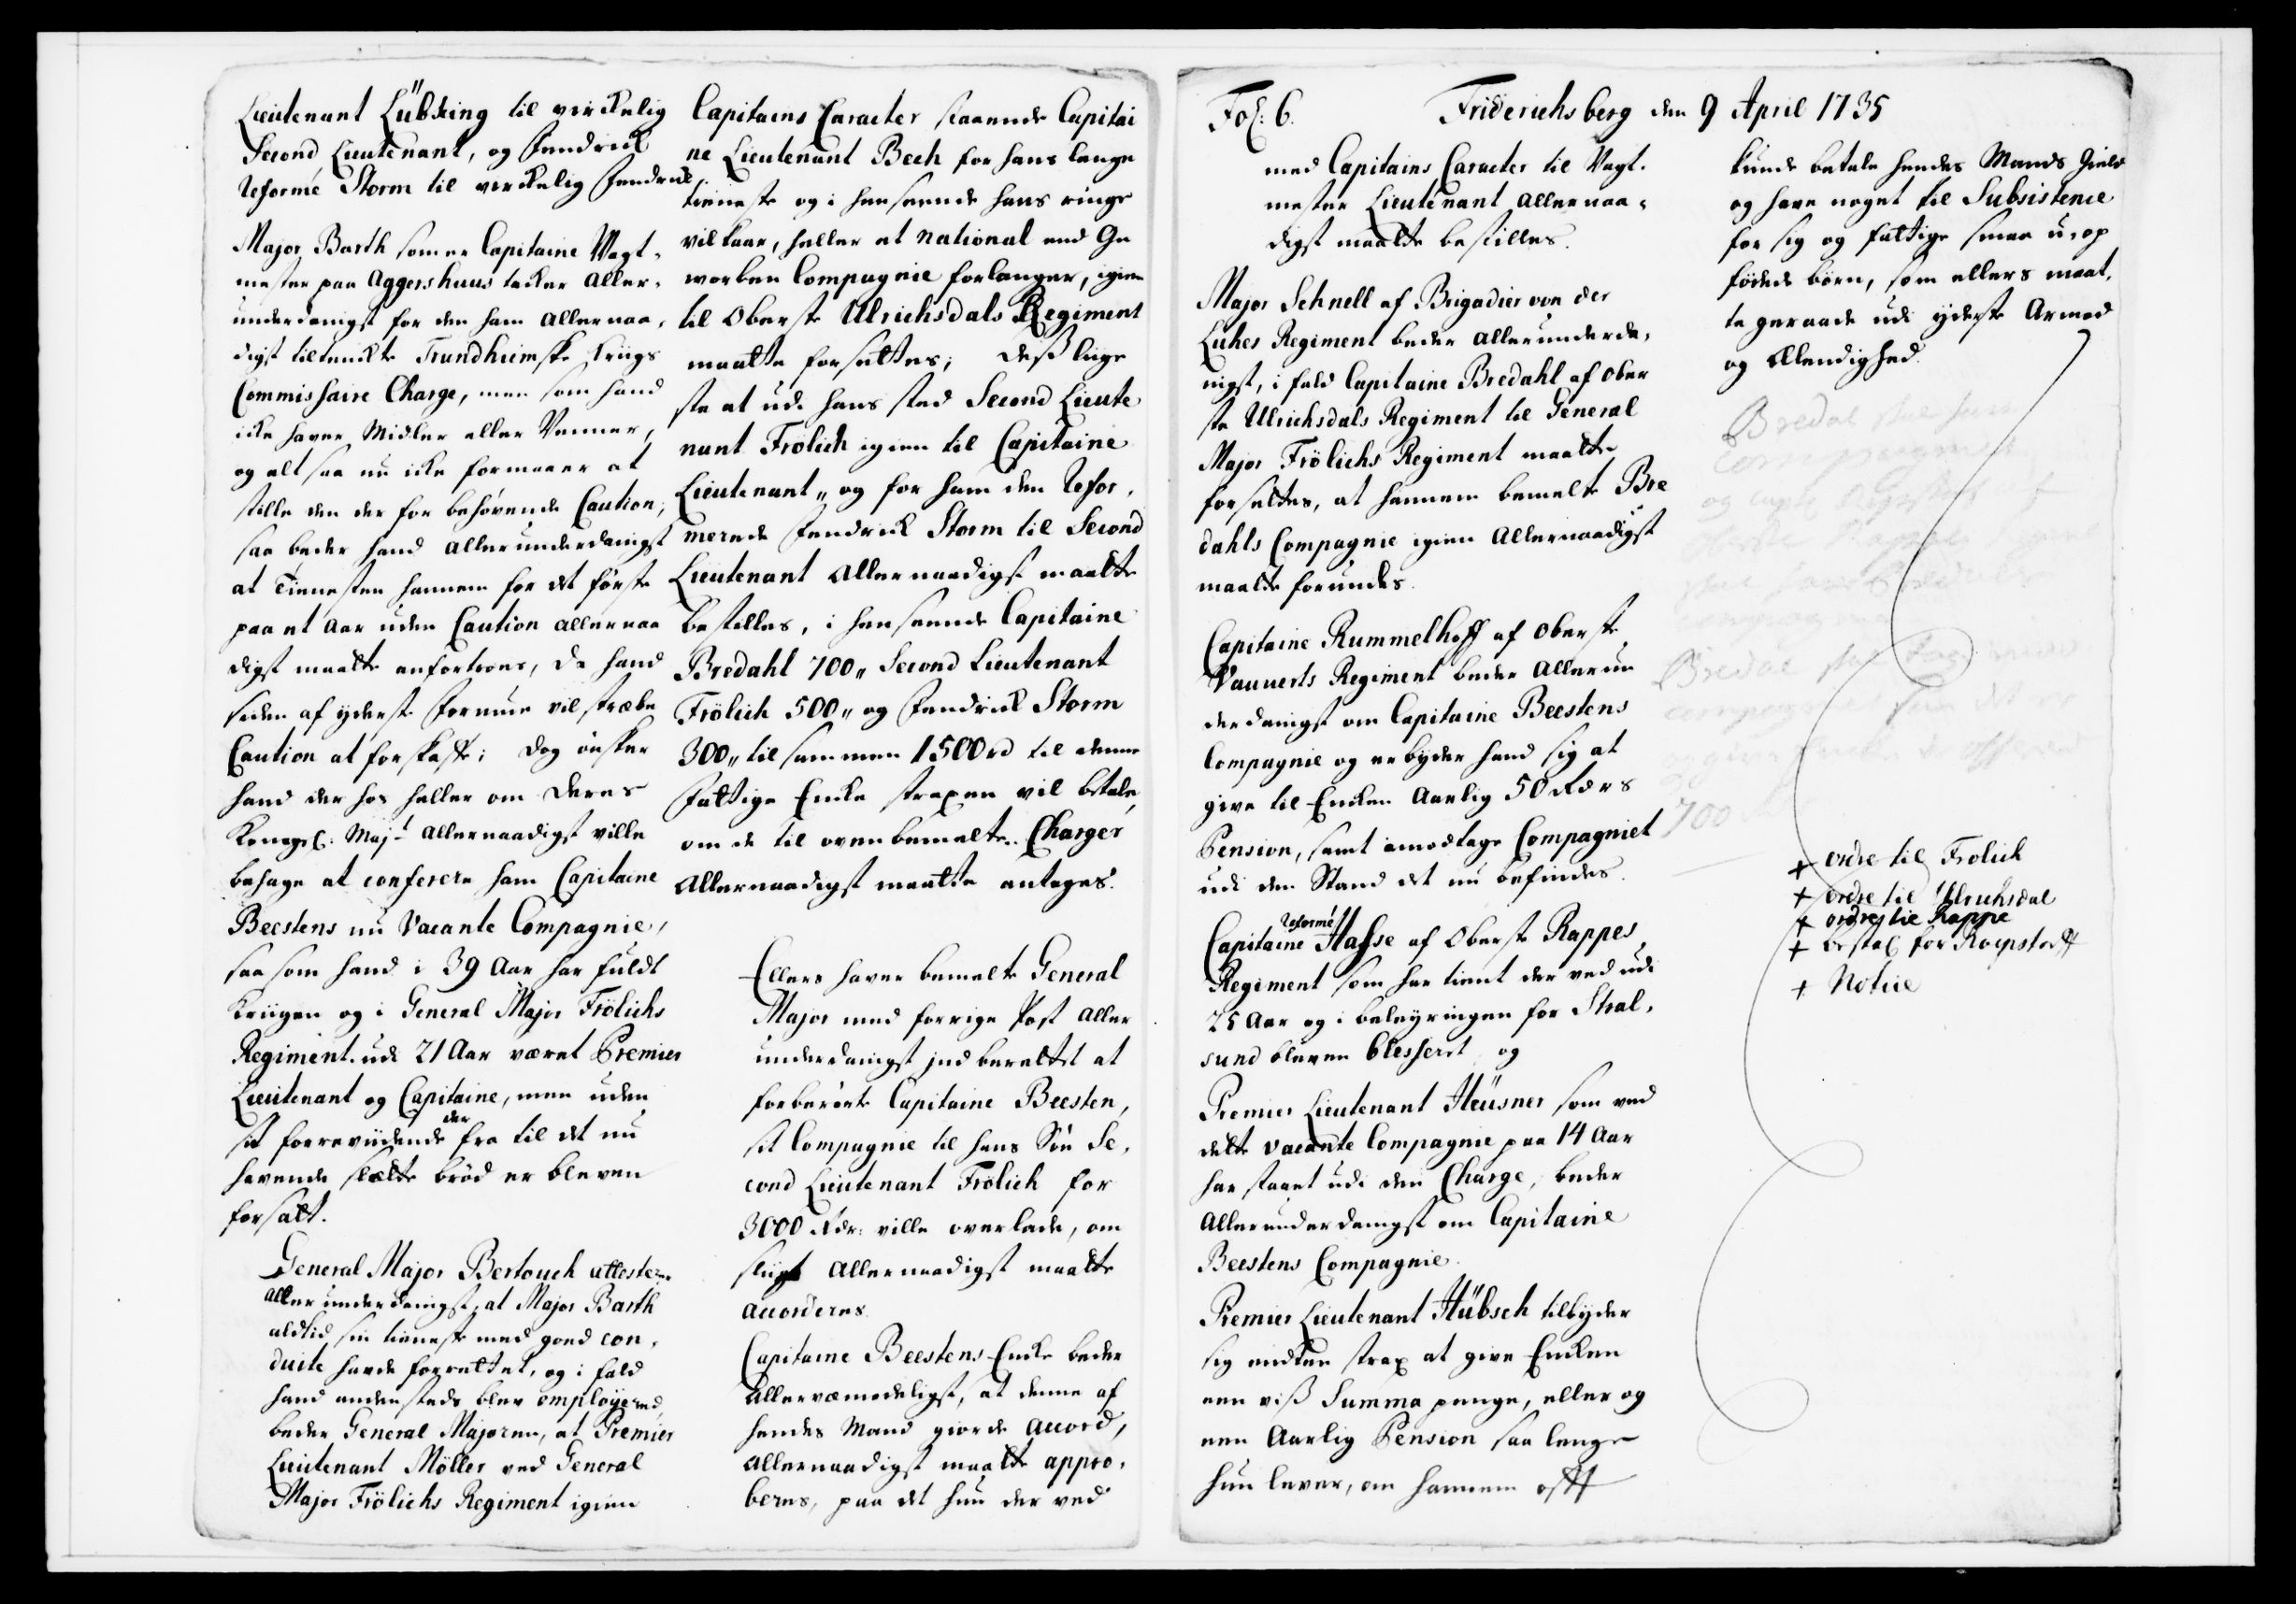 Lieutenant Lübsing til virkelig
Second Lieutenant, og Fendrich
Reformé Storm til virkelig Fendrich
Major Barth som er Capitaine Vagt-
mester paa Aggershuus tacker Aller-
underdanigst for den ham Allernaa-
digst tiltenckte Trundheimske Kriigs
Commissaire Charge, men som hand
icke haver Midler eller Venner,
og altsaa nu icke formaaer at
stille den der for behøvende Caution,
saa beder hand allerunderdanigst
at Tienesten hannem for det første
paa et Aar uden Caution allernaa
digst maatte anfortroes, da hand
siden af yderste Formue vil stræbe
Caution at forskaffe; dog ønsker
hand der hos heller om Deres
Kongel: Maj:t Allernaadigst ville
behage at conferere ham Capitaine
Beestens nu Vacante Compagnie,
saa som hand i 39 Aar har fuldt
Kriigen og i General Major Frölichs
Regiment udi 21 Aar været Premier
Lieutenant og Capitaine, men uden
sit forreviidende der fra til det nu
havende slette brød er bleven
forsatt.
General Major Bertouch attesterer
Allerunderdanigst, at Major Barth
altid sin tieneste med goed con-
duite havde forrettet, og i fald
hand andensteds blev employered,
beder General Majoren, at Premier
Lieutenant Möller ved General
Major Frölichs Regiment igien
Capitains Caracter staaende Capitai
ne Lieutenant Bech for hans lange
tieneste og i henseende hans ringe
vilkaar, heller et National end Ge
worben Compagnie forlanger, igien
til Oberste Ulrichsdals Regiment
maatte forsættes; desslige
ste at udi hans sted Second Lieute
nant Frölich igien til Capitaine
Lieutenant, og for ham den Refor-
merede Fendrick Storm til Second
Lieutenant Allernaadigst maatte
bestilles, i henseende Capitaine
Bredahl 700,, Second Lieutenant
Frölich 500,, og Fendrick Storm
300,, til sammen 1500 rd til denne
Fattige Encke straxen vil betale,
om de til ovenbemelte Charger
Allernaadigst maatte antages.
Ellers haver bemelte General
Major med forrige Post Aller
underdanigst indberettet at
forberørte Capitaine Beesten,
sit Compagnie til hans Søn Se-
cond Lieutenant Frölich for
3000 Rdr: ville overlade, om
sligt Allernaadigst maatte
accorderes.
Capitaine Beestens Encke beder
Allervemodeligst, at denne af
hendes Mand giorde accord,
Allernaadigst maatte appro-
beres, paa det hun der ved
Fol: 6. Friderichsberg den 9 April 1735
med Capitains Caracter til Vagt-
mester Lieutenant Allernaa-
digst maatte bestilles.
Major Schnell af Brigadier von der
Lühes Regiment beder allerunderda-
nigst, i fald Capitaine Bredahl af Ober
ste Ulrichsdals Regiment til General
Major Frölichs Regiment maatte
forsættes, at hannem bemelte Bre
dahls Compagnie igien Allernaadigst
maatte forundes.
Capitaine Rummelhoff af Oberste
Vauuerts Regiment beder Allerun
derdanigst om Capitaine Beestens
Compagnie og erbyder hand sig at
give til Encken Aarlig 50 Rdrs
Pension, samt imodtage Compagniet
udi den Stand det nu befindes.
Capitaine Reformé Hasse af Oberste Rappes
Regiment som har tient der ved udi
25 Aar og i beleyringen for Stral-
sund bleven blesseret og
Premier Lieutenant Heüsner som ved
dette Vacante Compagnie paa 14 Aar
har staaet udi den Charge, beder
Allerunderdanigst om Capitaine
Beestens Compagnie.
Premier Lieutenant Hübsch tilbyder
sig endten strax at give Encken
een viss Summa penge, eller og
een Aarlig Pension saa lenge
hun lever, om hannem offt
kunde betale hendes Mands Gield
og have noget til Subsistence
for sig og fattige smaa u-op
fødede børn, som ellers maat-
te geraade udi yderste Armod
og Elendighed.
Bredal skal have
compagniet
og
Bredal skal
compagniet
700
+ ordre til Frolich
+ ordre til Ulrichsdal
+ ordre til Rappe
+ bestal for Roepstorff
+ Notice